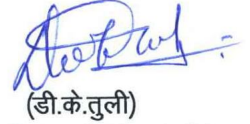 (डी.के.तुली)